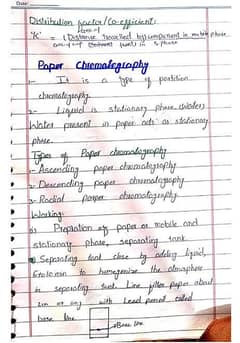 Date:
Distribution factor/Co-efficient:
'K' = (Distance travelled by) component in mobile phase
Paper Chromatography
1- It is a type of partition
chromatography.
2- Liquid is stationary phase. (Water)
Water present in paper acts as stationary
phase.
Types of Paper chromatography
1- Ascending paper chromatography
2- Descending paper chromatography
3- Radial paper chromatography
Working:
of paper as mobile and
stationary phase, separating tank
Separating tank close by adding liquid,
to homogenize the atmosphere
in separating tank. Line filter paper about
with Lead pencil called
base line
Base line